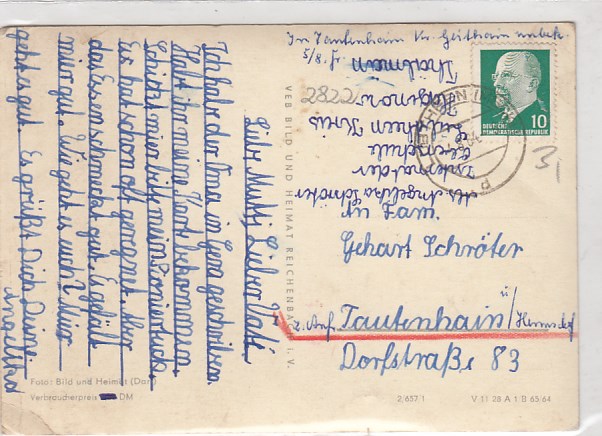 Liebe Mutti, Lieber Vati!
Ich habe der Oma in Gera geschrieben.
Habt ihr meine Karte bekommen.
Schickt mir bitte mein Pioniertuch.
Es hat schon oft geregnet. Aber
das Essen schmeckt gut. Es gefällt
mir gut. Wie geht es euch? Mir
geht es gut. Es grüßt Dich Deine
Angelika
In Tautenhain Kr. Geithain unbek.
5/8.
2822
Abs. Angelika Schröter
Hagenow
Thälmann
An Fam.
Gehart Schröter
z. Anf. Tautenhain ü/ Hermsdorf
Dorfstraße 83
31
10
DEUTSCHE
DEMOKRATISCHE REPUBLIK
VEB BILD UND HEIMAT REICHENBACH i. V.
Foto: Bild und Heimat (Dorl)
Verbraucherpreis DM
2/657 1
V 11 28 A 1 B 65/64